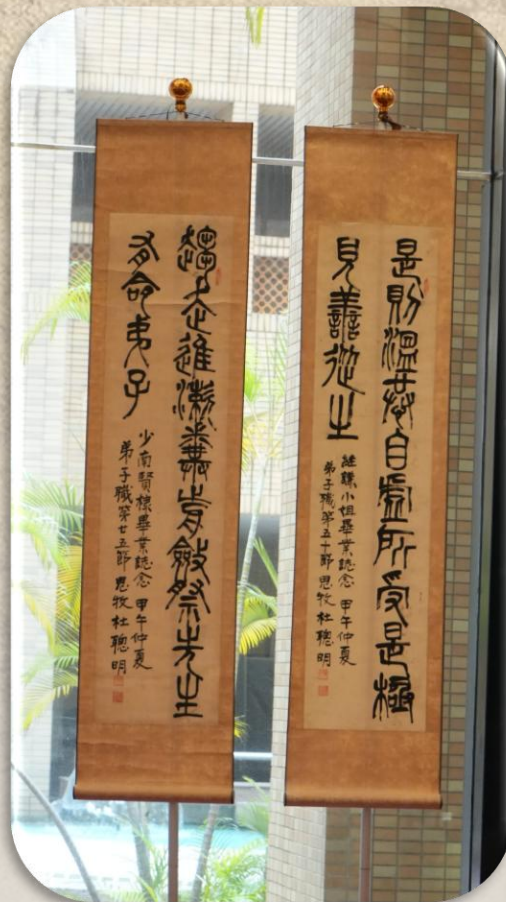 是則溫恭自虛所受是極
見善從之
維謙小姐畢業誌念 甲午仲夏
弟子職第五十節 思牧 杜聰明
趨走進漱糞前斂祭先生
有命弟子
少南賢棣畢業誌念 甲午仲夏
弟子職第廿五節 思牧 杜聰明